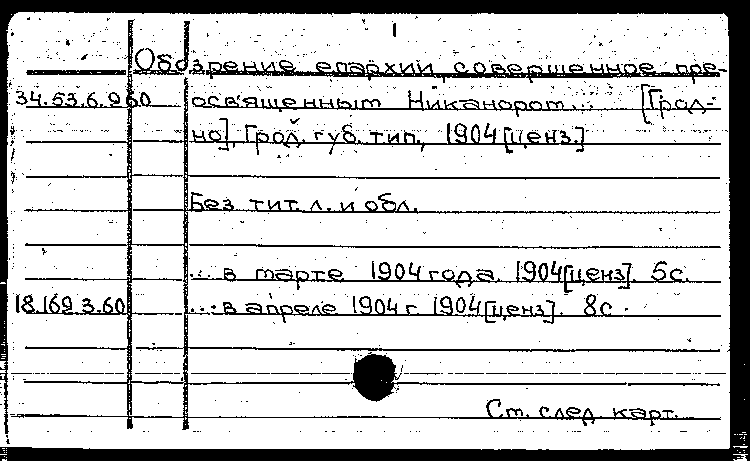 1
Обозрение епархии, совершенное пре-
34.53.6.960 освященным Никанором... [Грод-
но], Грод. губ. тип., 1904 [ценз.]
Без тит. л. и обл.
... в марте 1904 года. 1904 [ценз]. 5с.
18.169.3.60 ... в апреле 1904 г. 1904 [ценз]. 8с.
См. след. карт.